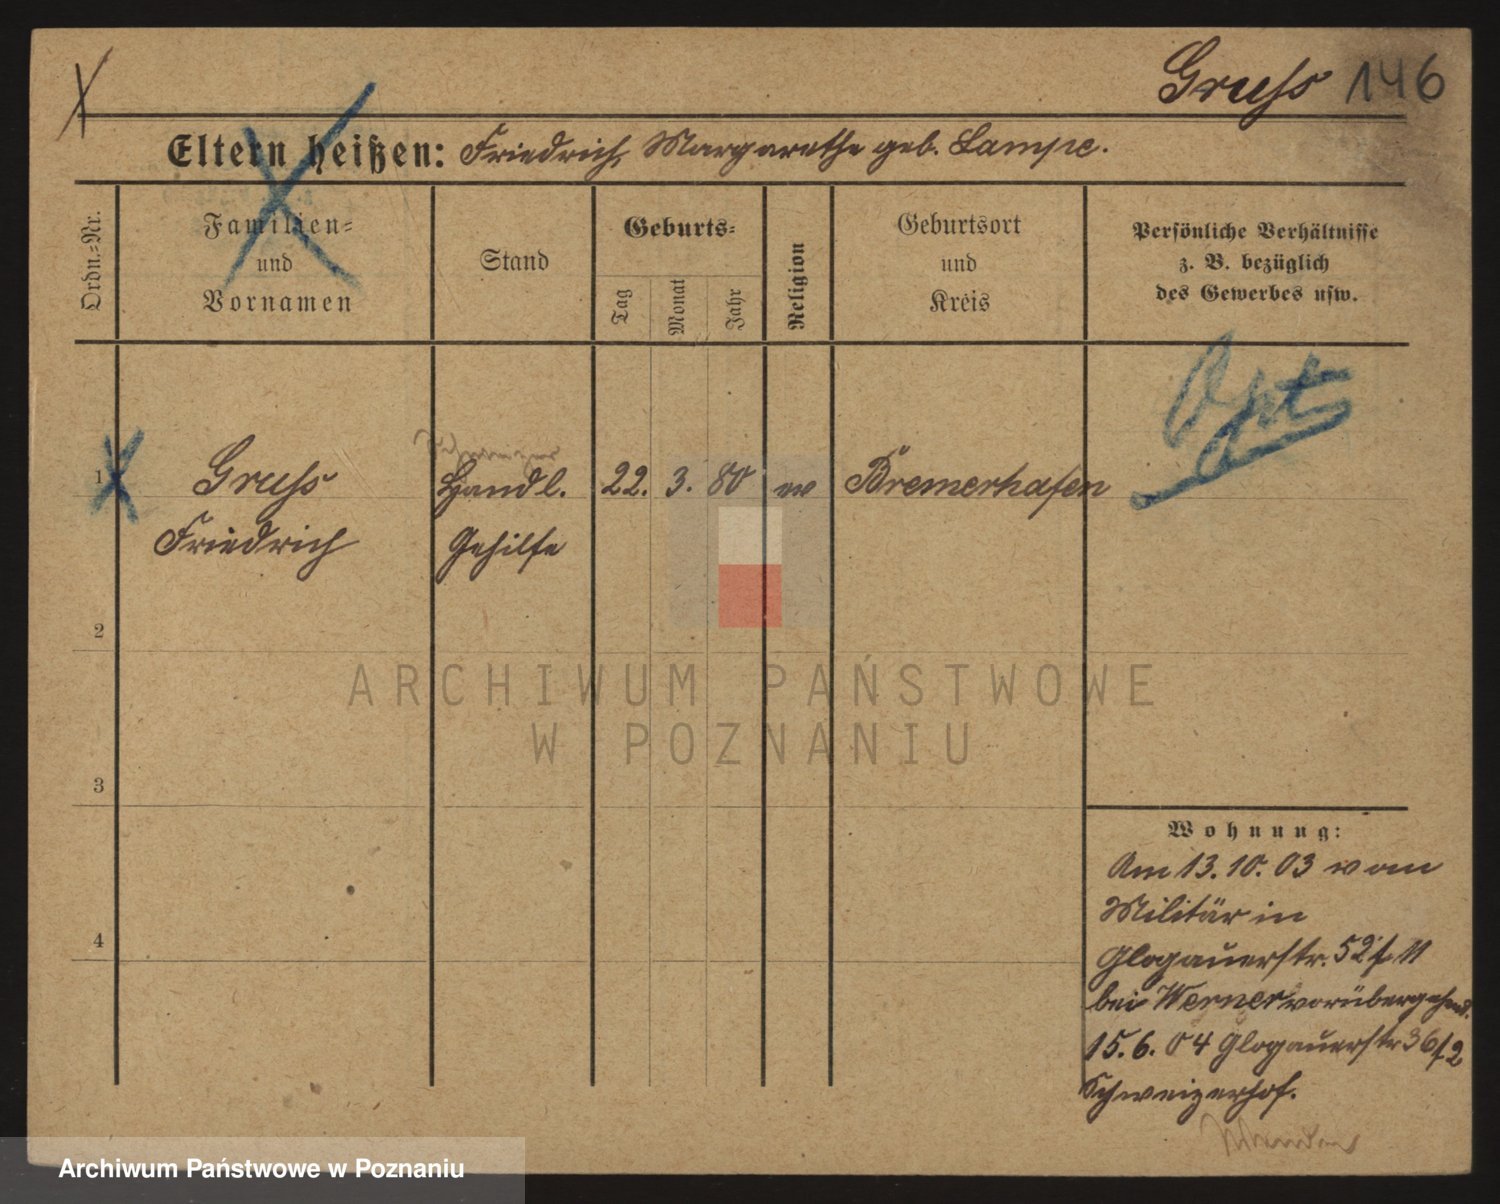 Gruss 146
Eltern heißen: Friedrich, Margarethe geb. Lampe.
Ordn.-Nr.
Familien-
und
Vornamen
Stand
Geburts-
Tag
Monat
Jahr
Religion
Geburtsort
und
Kreis
Persönliche Verhältnisse
z. B. bezüglich
des Gewerbes usw.
1 Gruss Handl. 22. 3. 80 ev Bremerhafen
Friedrich Gehilfe
2
3
4
Wohnung:
Am 13.10.03 vom
Militär in
Glogauerstr. 52
bei Werner vorübergehend.
15.6.04 Glogauerstr 36
Schweizerhof.
ARCHIWUM PAŃSTWOWE
W POZNANIU
Archiwum Państwowe w Poznaniu